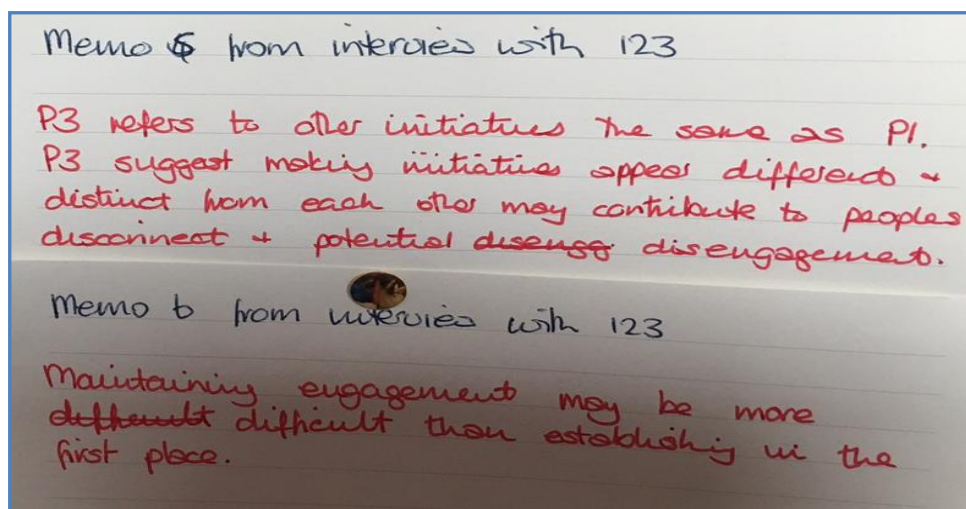 Memo 5 from interview with 123
P3 refers to other initiatives the same as P1.
P3 suggest making initiatives appear different +
distinct from each other may contribute to peoples
disconnect + potential disengg disengagement.
Memo 6 from interview with 123
Maintaining engagement may be more
difficult than establishing in the
first place.